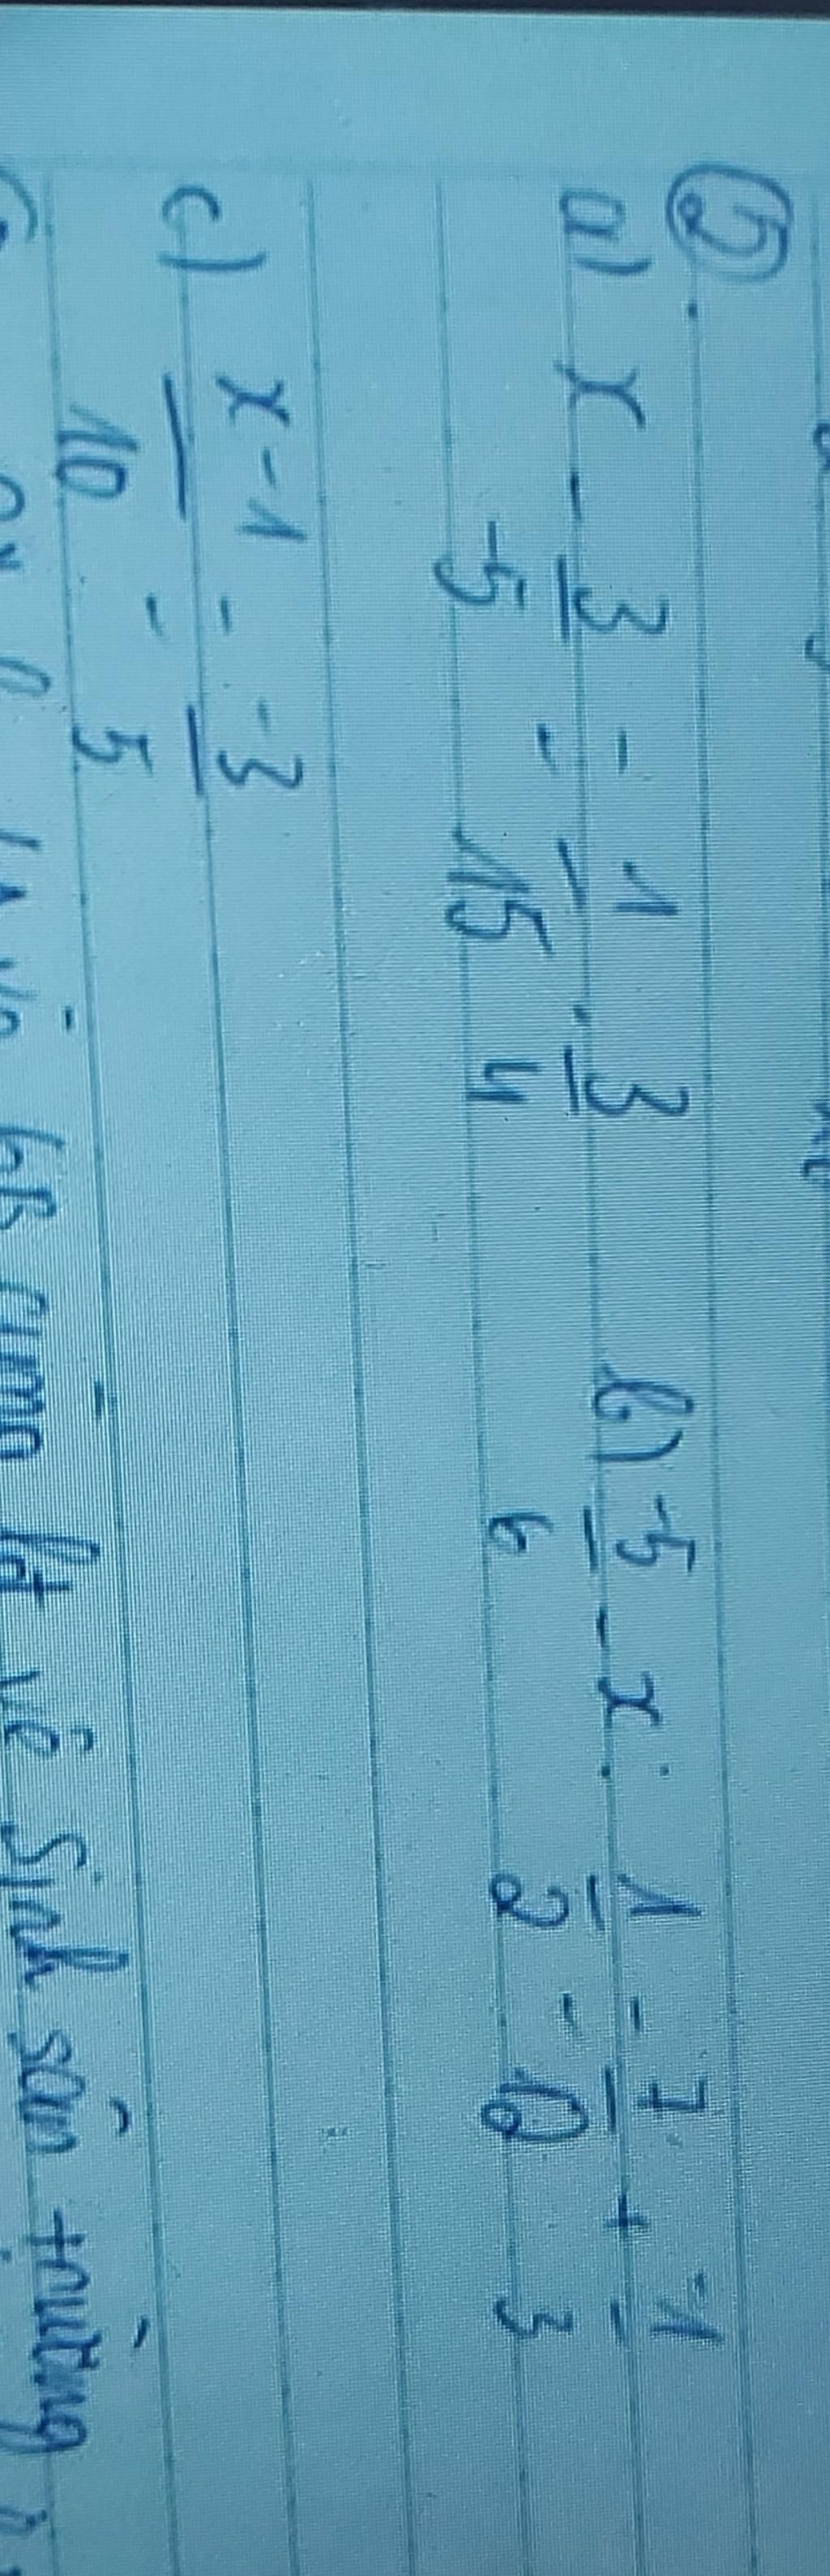 5.
a) x - 3/-5 = 1/15 . 3/4 b) -5/6 - x : 1/2 = 7/12 + -1/3
c) x-1/10 = -3/5
6B cùng lđ vệ sinh sân trường